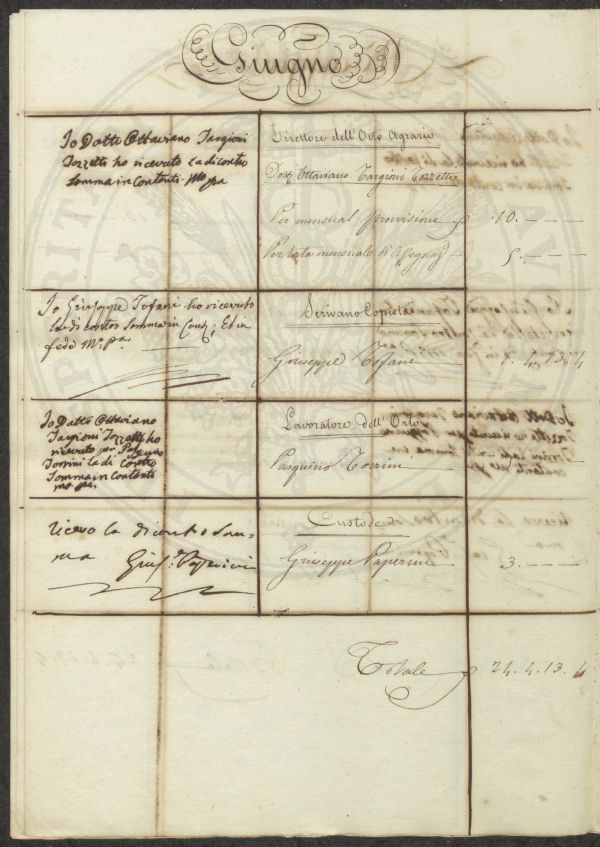 Giugno
Io Dotto Ottaviano Targioni
Tozzetti ho ricevuto la di contro
somma in Contanti M.o pa
Direttore dell'Orto Agrario
Dott. Ottaviano Targioni Tozzetti
Per mensual provvisione 10. — — —
Per rata mensuale di 5. — — —
Io Giuseppe Tofani ho ricevuto
la di contro Somma in Cont; Et in
fede M.o pa
Scrivano Copista
Giuseppe Tofani 4. 13. 4
Io Dotto Ottaviano
Targioni Tozzetti ho
ricevuto per Pasquino
Torrini la di Contro
Somma in Contanti
mo. pa.
Lavoratore dell'Orto
Pasquino Torrini
ricevo la di contro Som-
ma Gius.e Paperini
Custode
Giuseppe Paperini 3. — — —
Totale 24. 4. 13. 4